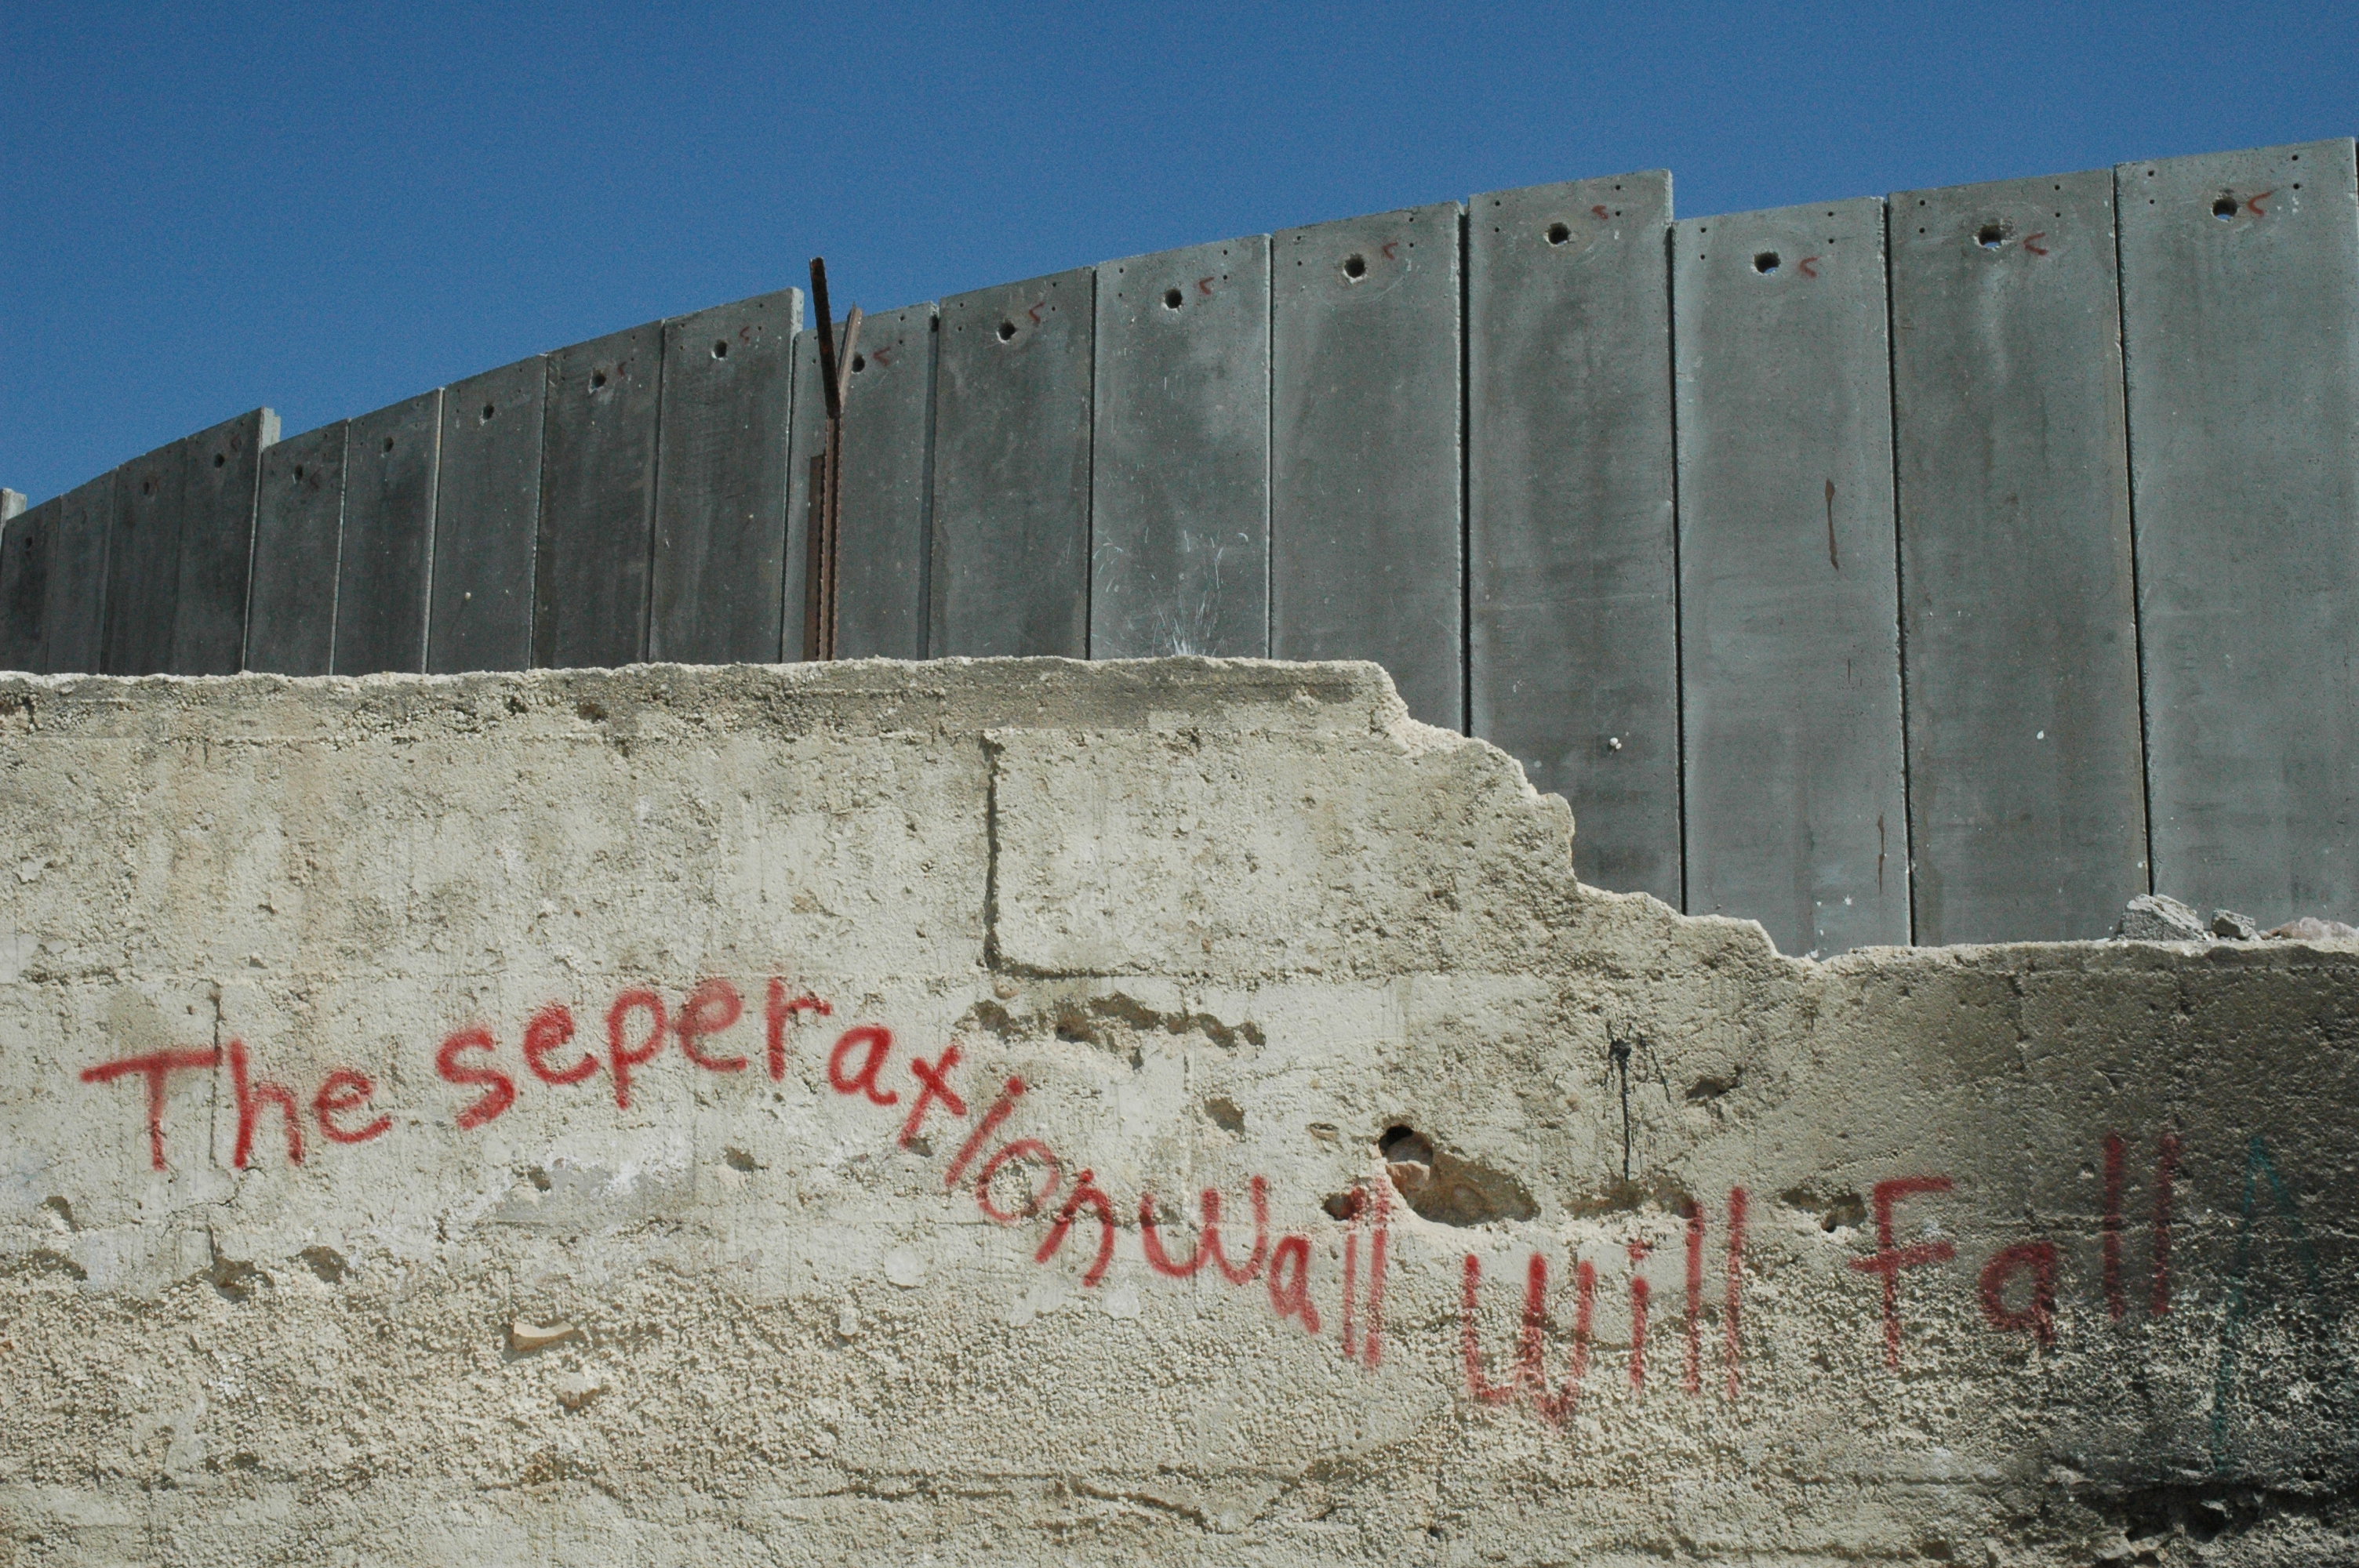 The seperation wall will Fall